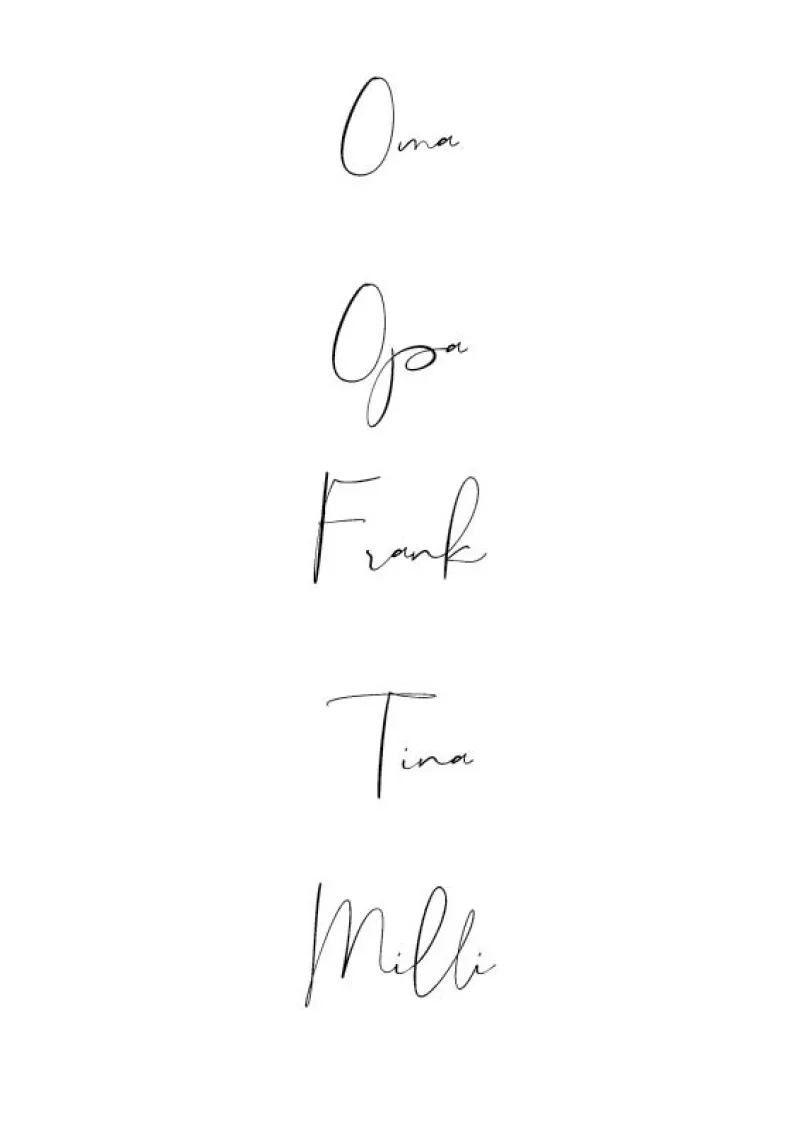 Oma
Opa
Frank
Tina
Milli